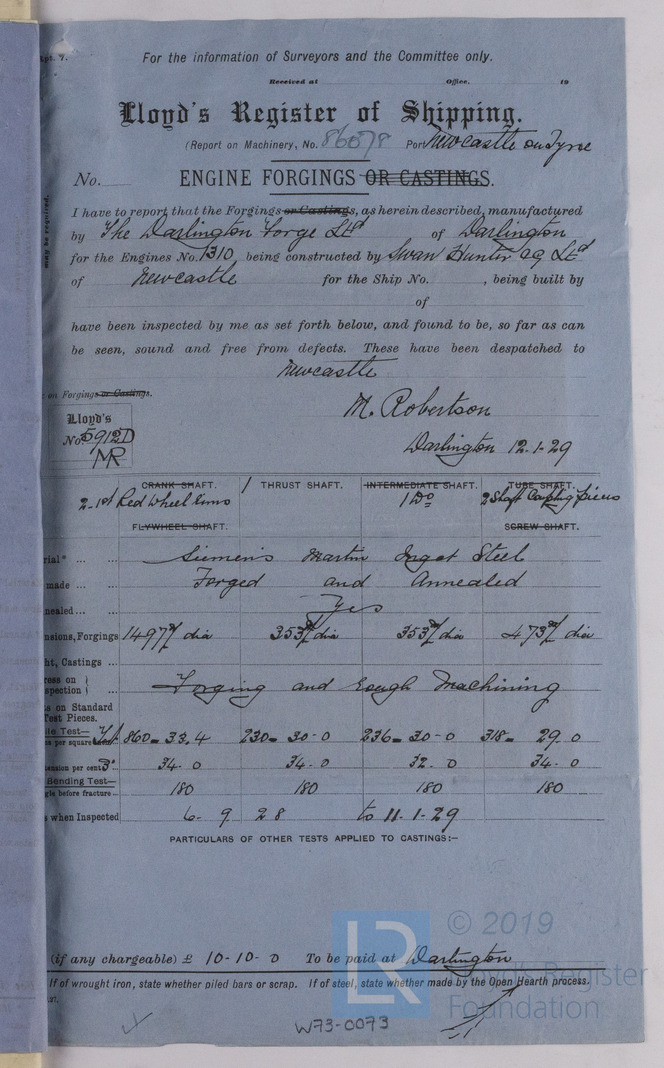 pt. 7.
For the information of Surveyors and the Committee only.
Received at Office. 19
Lloyd's Register of Shipping.
(Report on Machinery, No. 86078 Port Newcastle on Tyne
No.
ENGINE FORGINGS OR CASTINGS.
I have to report that the Forgings or Castings, as herein described, manufactured
by The Darlington Forge Ltd of Darlington
for the Engines No. 1310, being constructed by Swan Hunter &c Ltd
of Newcastle for the Ship No. , being built by
of
have been inspected by me as set forth below, and found to be, so far as can
be seen, sound and free from defects. These have been despatched to
Newcastle
may be required.
on Forgings or Castings.
M. Robertson
Lloyd's
No. 5912D
MR
Darlington 12.1.29
CRANK SHAFT. 1 THRUST SHAFT. INTERMEDIATE SHAFT. TUBE SHAFT.
2-1st Red Wheel Rims 1 Do 2 Shaft Coupling pieces
FLYWHEEL SHAFT. SCREW SHAFT.
rial* Siemens Martin Ingot Steel
made Forged and Annealed
nealed Yes
nsions, Forgings 1497 m/m dia 353 m/m dia 353 m/m dia 473 m/m dia
ht, Castings
ress on
spection Forging and rough Machining
s on Standard
Test Pieces.
le Test—
ns per square 860 - 33.4 230 - 30.0 236 - 30.0 318 - 29.0
ension per cent 3" 34.0 34.0 32.0 34.0
Bending Test—
gle before fracture 180 180 180 180
s when Inspected 6. 9. 28 to 11.1.29
PARTICULARS OF OTHER TESTS APPLIED TO CASTINGS:—
© 2019
(if any chargeable) £ 10-10-0 To be paid at Darlington
LR
Lloyd's Register
If of wrought iron, state whether piled bars or scrap. If of steel, state whether made by the Open Hearth process.
Foundation
W73-0073